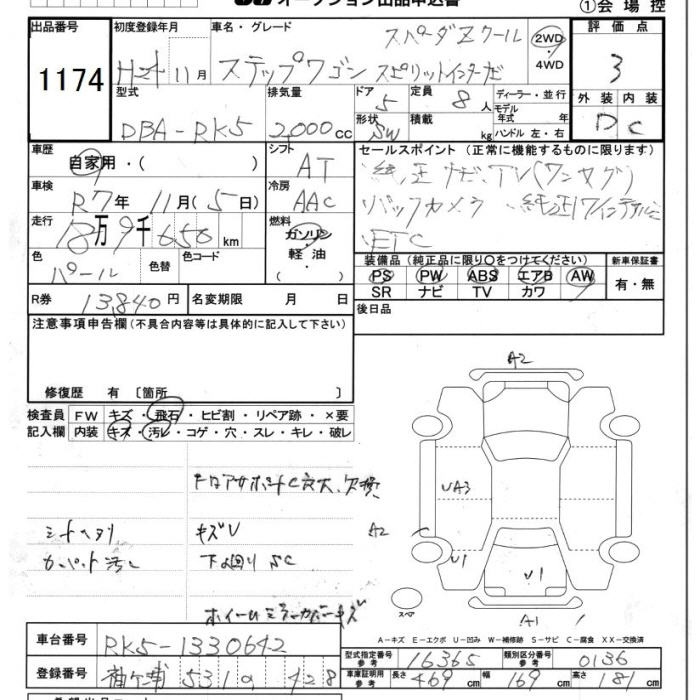 オークション出品申込書
①会場控
出品番号 1174
初度登録年月 11月
車名・グレード スパーダZクール
ステップワゴン スピリットインターナビ
2WD
4WD
評価点 3
型式 DBA-RK5
排気量 2,000cc
ドア 5
形状 SW
定員 8人
積載 kg
ディーラー・並行
モデル年式 年
ハンドル 左・右
外装 内装
D C
車歴 自家用・( )
シフト AT
車検 R7年 11月(5日)
冷房 AAC
走行 18万9千650km
燃料 ガソリン
軽油
色 パール
色替
色コード
R券 13,840円
名変期限 月 日
セールスポイント(正常に機能するものに限ります)
純正ナビ、TV(ワンセグ)
バックカメラ 純正17インチアルミ
ETC
装備品(純正品に限り○をつけてください)
PS PW ABS エアB AW
SR ナビ TV カワ
新車保証書
有・無
後日品
注意事項申告欄(不具合内容等は具体的に記入して下さい)
修復歴 有〔箇所 〕
検査員記入欄
FW キズ・飛石・ヒビ割・リペア跡・×要
内装 キズ・汚レ・コゲ・穴・スレ・キレ・破レ
シートヘタリ
カーペット汚レ
キズU
下回りSC
ホイールミラーカバーキズ
A2
UA3
A2
U1
U1
A1
スペア
A-キズ E-エクボ U-凹み W-補修跡 S-サビ C-腐食 XX-交換済
車台番号 RK5-1330642
登録番号 袖ケ浦 531 428
型式指定番号 参考 16365
類別区分番号 参考 0136
車庫証明 参考 長さ 469cm 幅 169cm 高さ 181cm